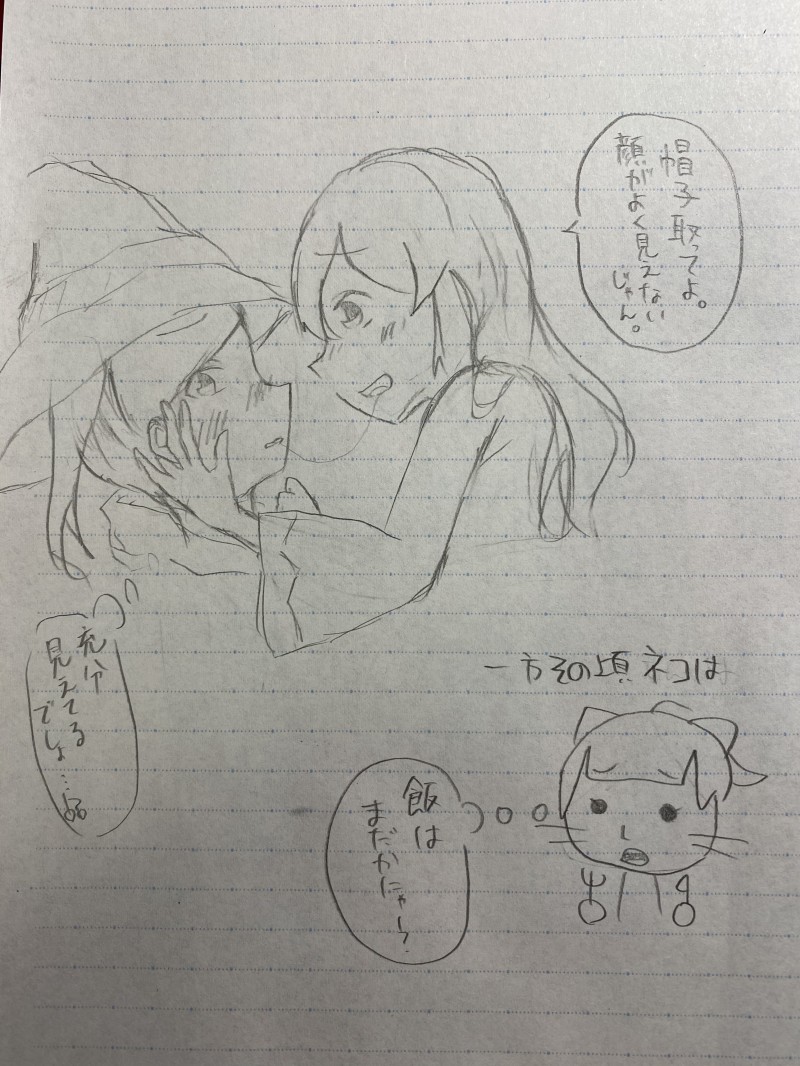 帽子取ってよ。
顔がよく見えない
じゃん。
充分
見えてる
でしょ…
一方その頃ネコは
飯は
まだかにゃ〜?